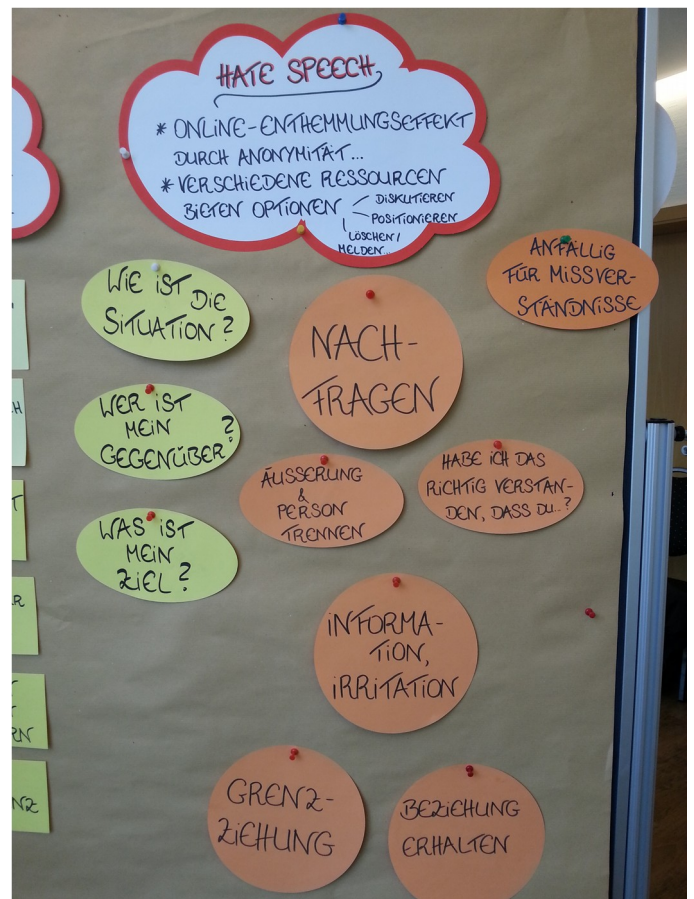 HATE SPEECH
* ONLINE-ENTHEMMUNGSEFFEKT
DURCH ANONYMITÄT...
* VERSCHIEDENE RESSOURCEN
BIETEN OPTIONEN
DISKUTIEREN
POSITIONIEREN
LÖSCHEN/
MELDEN...
ANFÄLLIG
FÜR MISSVER-
STÄNDNISSE
WIE IST DIE
SITUATION?
NACH-
FRAGEN
WER IST
MEIN
GEGENÜBER?
ÄUSSERUNG
&
PERSON
TRENNEN
HABE ICH DAS
RICHTIG VERSTAN-
DEN, DASS DU...?
WAS IST
MEIN
ZIEL?
INFORMA-
TION,
IRRITATION
GRENZ-
ZIEHUNG
BEZIEHUNG
ERHALTEN